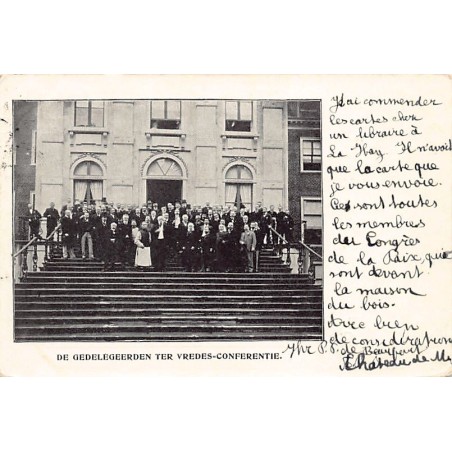 J'ai commender
les cartes chez
un libraire à
La Hay Il n'avait
que la carte que
je vous envoie.
Ce sont toutes
les membres
du Congrès
de la Paix, qui
sont devant
la maison
du bois.
Avec bien
de considération
de Beaufort
Château de
DE GEDELEGEERDEN TER VREDES-CONFERENTIE.